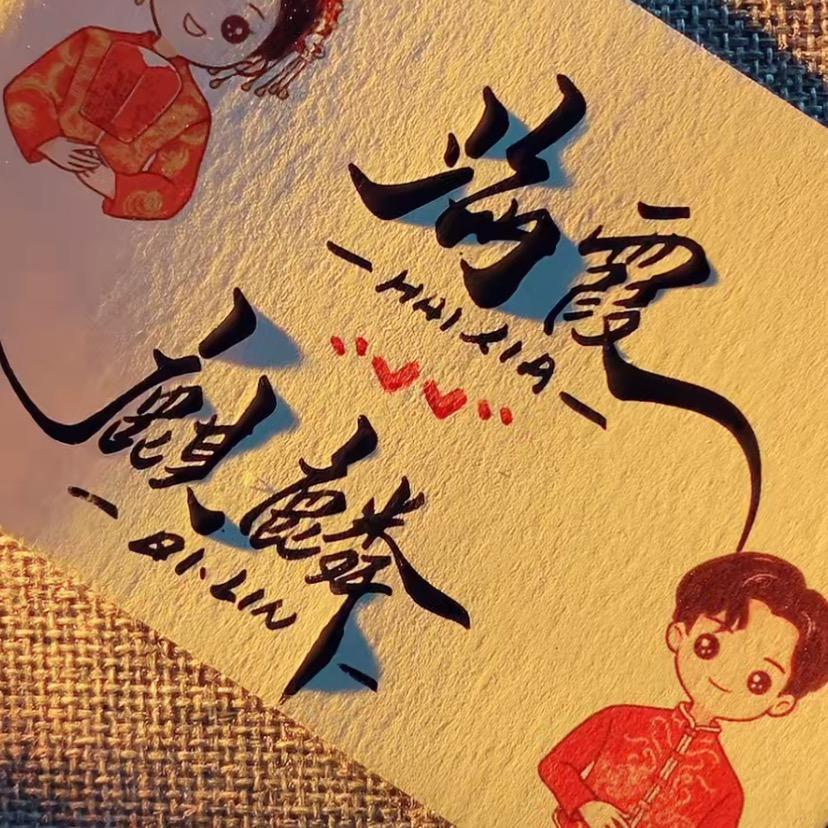 海霞
HAI XIA
麒麟
QI.LIN